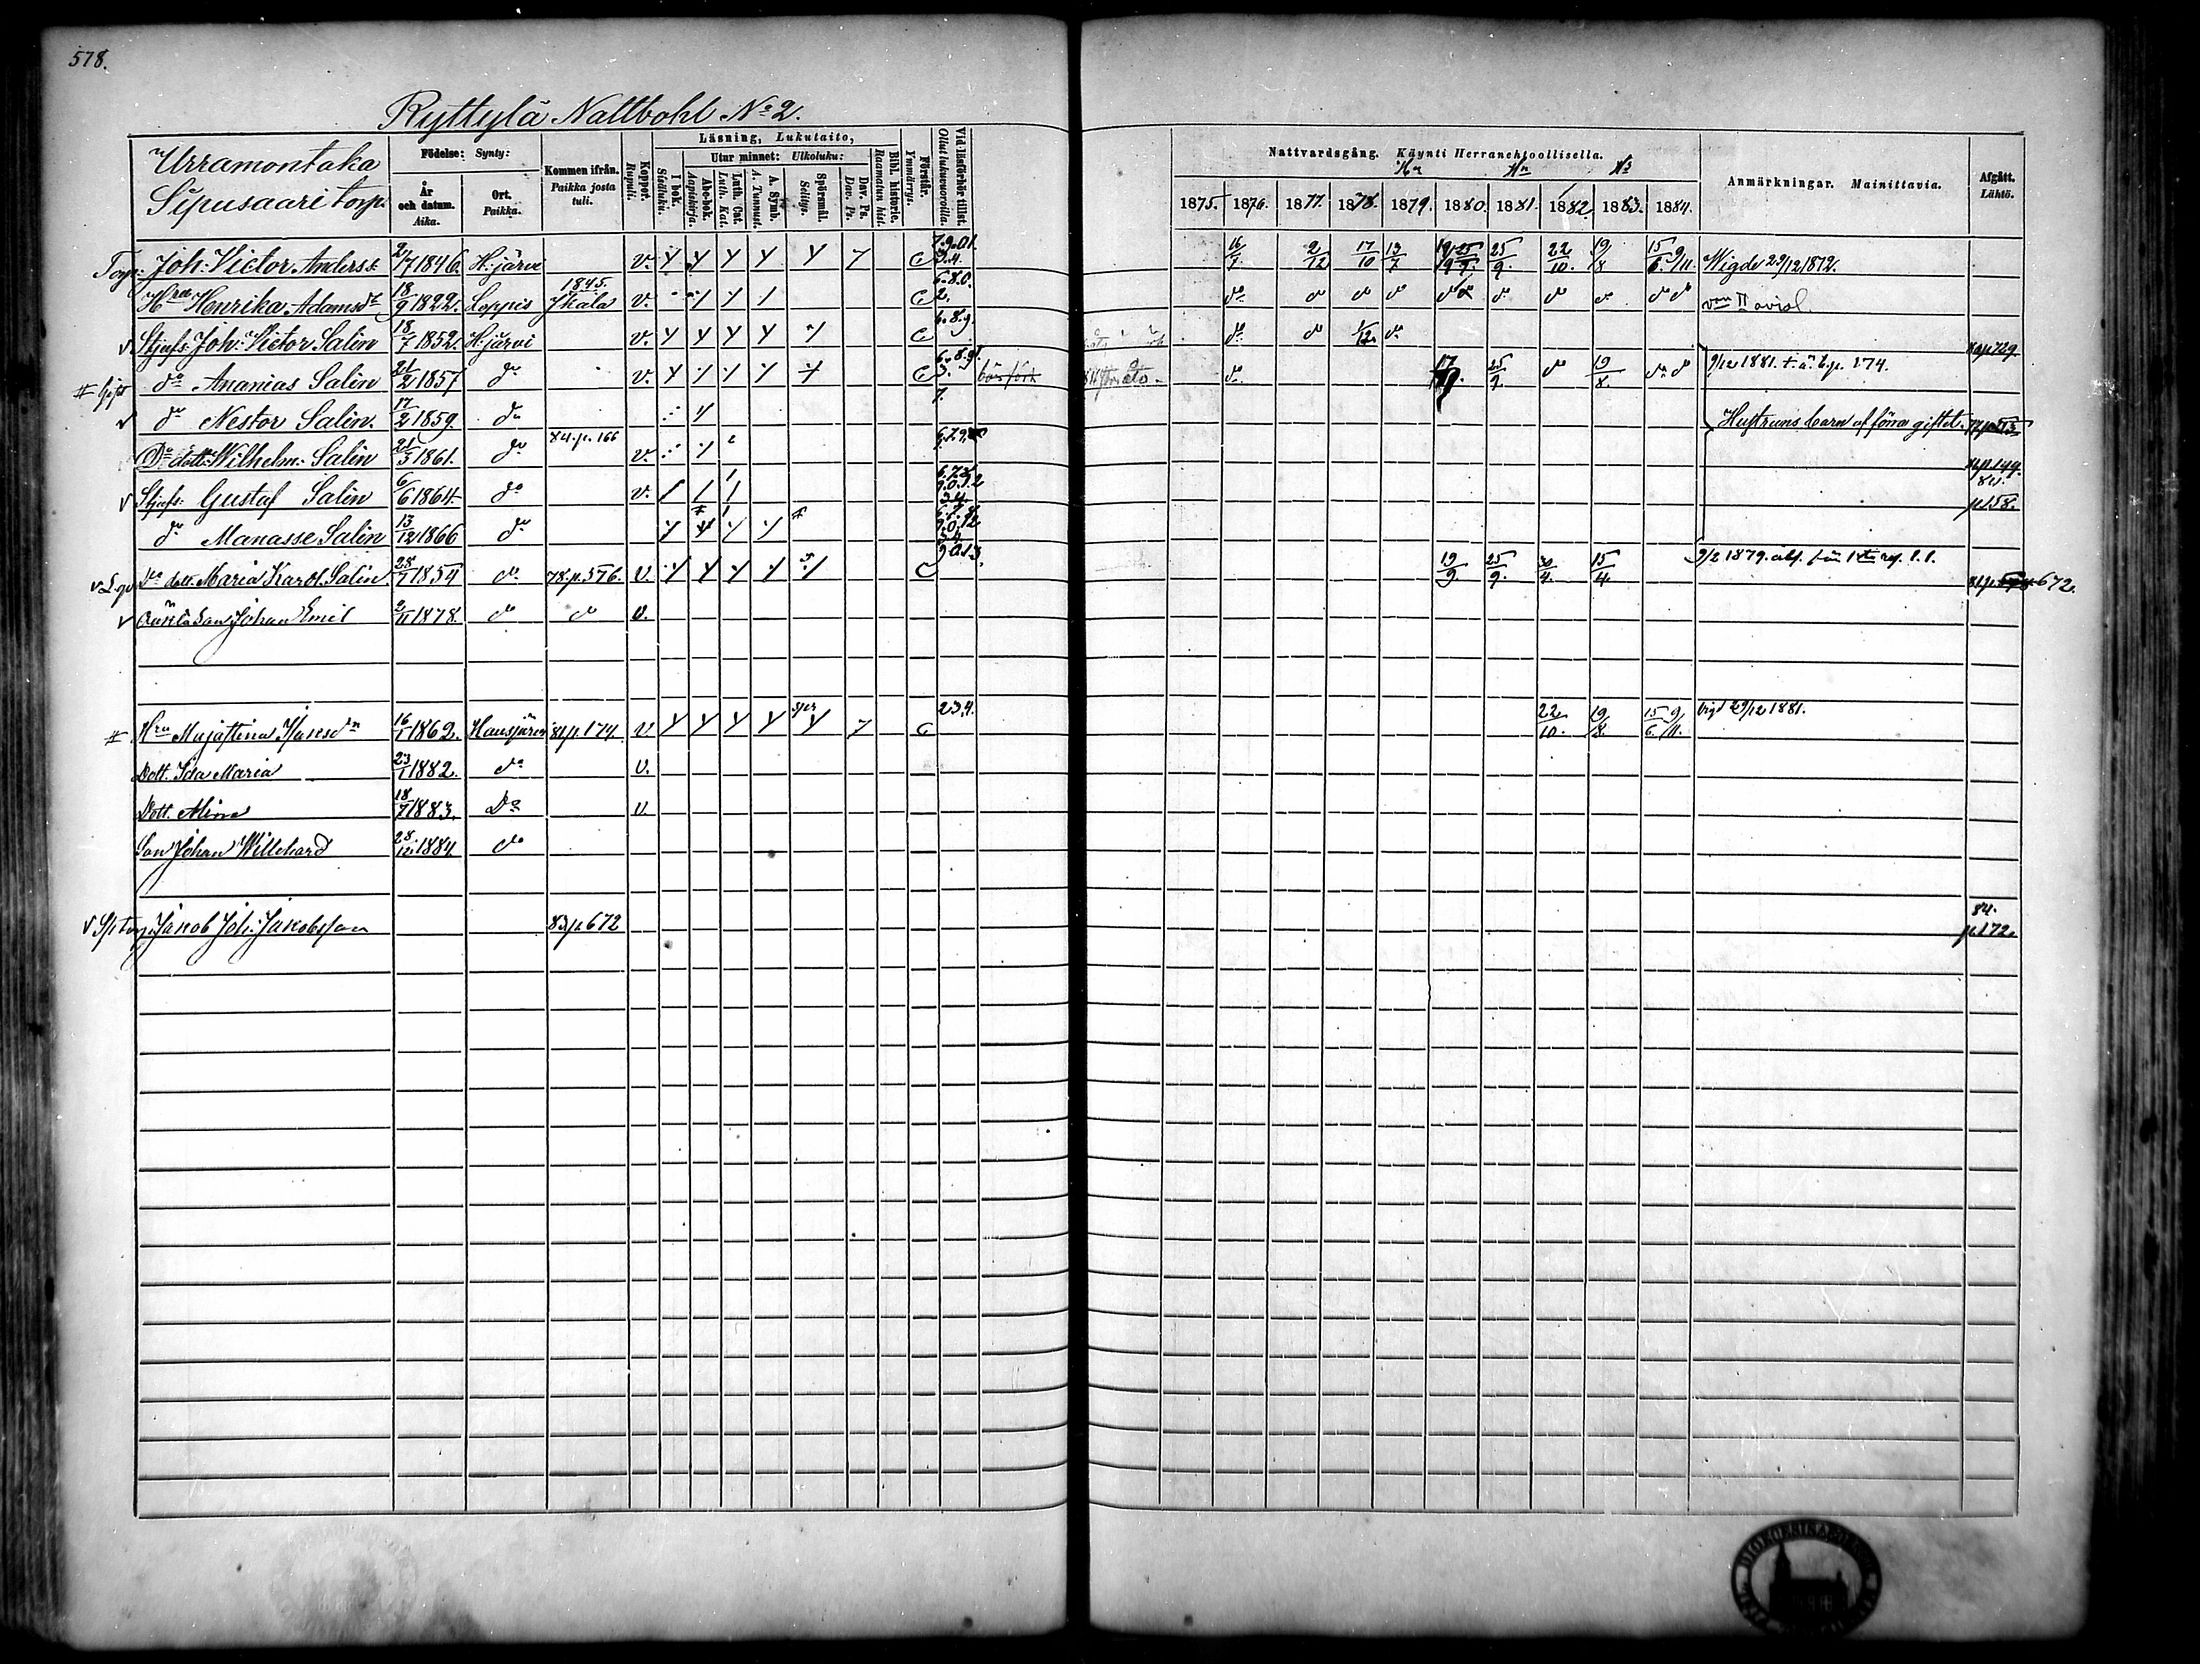 578.
Ryttylä Nallbohl No 2.
Urramontaka
Sipusaari torp.
Födelse: Synty:
År och datum. Aika.
Ort. Paikka.
Kommen ifrån. Paikka josta tuli.
Koppor. Rupuli.
Läsning, Lukutaito,
I bok. Sisäluku.
Utur minnet: Ulkoluku:
Abc-bok. Aapiskirja.
Luth. Cat. Luth. Kat.
A. Symb. A. Tunnust.
Spörsmål. Selitys.
Dav. Ps. Dav. Ps.
Bibl. historie. Raamatun hist.
Förstår. Ymmärrys.
Vid läsförhör tillst. Ollut lukuvuoroilla.
Nattvardsgång. Käynti Herranehtoollisella.
1875. 1876. 1877. 1878. 1879. 1880. 1881. 1882. 1883. 1884.
Anmärkningar. Mainittavia.
Afgått. Lähtö.
Torp: Joh: Victor Anderss: 2/7 1846. H:järvi v. 7.9.01. 3.4. 16/7 2/12 17/10 13/7 25/9 22/10. 19/8 15/6. 9/11 Wigde 29/12 1872.
Hru Henrika Adamsdr 18/9 1822. Loppis 1845. Jkala v. 6.8.0. 2. do
Styfs: Joh: Victor Salin 18/7 1852. H:järvi v. 6.8.9. do do 1/12 do p 729
Gift do Ananias Salin 21/2 1857 do v. 6.8.9. 3. do 25/9. do 19/8. do do 9/12 1881. t. ä. b. p. 174.
do Nestor Salin. 17/2 1859. do 7. Hustruns barn af förra giftet.
Do dott: Wilhelm: Salin 21/5 1861. do 84. p. 166 v. p. 149.
Styfs: Gustaf Salin 6/6 1864 do v. p 158.
do Manasse Salin 13/12 1866 do
Do dott. Maria Karol. Salin 28/7 1859 do 78. p. 576. v. 9.0.1.3. 19/9. 25/9. 15/4. 9/2 1879. 672.
Oäkta Son Johan Emil 2/11 1878. do do v.
Hru Majastina 16/1 1862. Hausjärvi 81 p. 174. v 2.3.4. 22/10. 19/8. 15/6. 9/11. Vigd 29/12 1881.
Dott. Ida Maria 23/1 1882. do v.
Dott. Alina 18/7 1883. Do v.
Son Johan Willehard 28/12 1884 do
Jakob Joh: Jakobsson 83 p 672 84. p. 172.